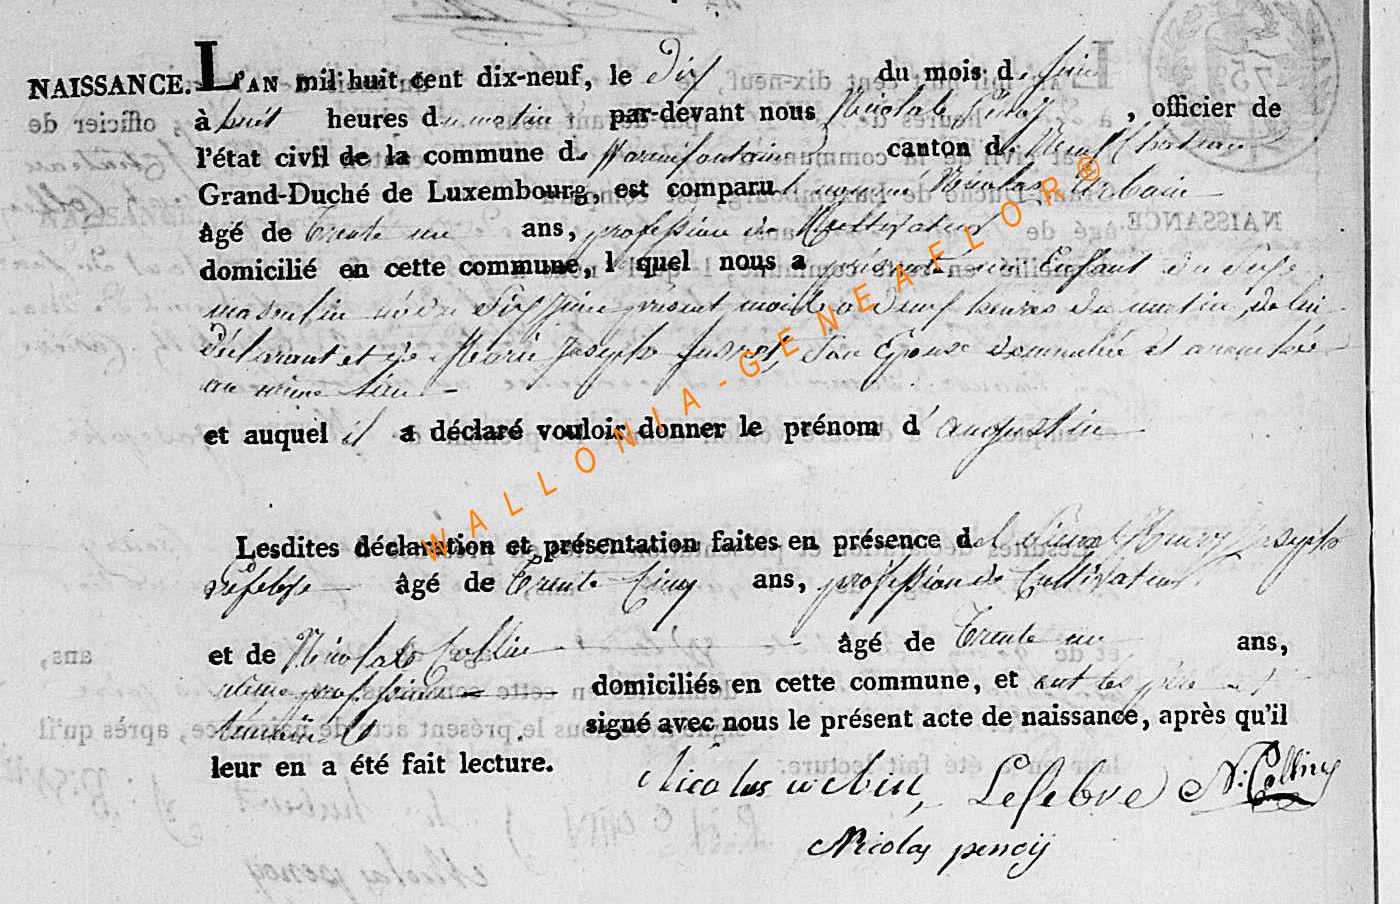 NAISSANCE. L'AN mil huit cent dix-neuf, le Dix du mois de Juin
à huit heures du matin par-devant nous Nicolas Pency, officier de
l'état civil de la commune de Warmifontaine canton de Neufchateau
Grand-Duché de Luxembourg, est comparu le nommé Nicolas Urbain
âgé de Trente un ans, profession de Cultivateur
domicilié en cette commune, lequel nous a présenté un Enfant du Sexe
masculin né du Dix Juin présent mois à neuf heures du matin, de lui
déclarant et de Marie Joseph Son Epouse domiciliée et
au même lieu
et auquel il a déclaré vouloir donner le prénom d'augustin
Lesdites déclaration et présentation faites en présence de Henry Joseph
âgé de Trente Cinq ans, profession de Cultivateur
et de Nicolas Collin âgé de Trente un ans,
même profession domiciliés en cette commune, et ont les père et
témoins signé avec nous le présent acte de naissance, après qu'il
leur en a été fait lecture.
Nicolas urbin, Lefebvre N: Colling
Nicolas pency
WALLONIA-GENEAFLOR®